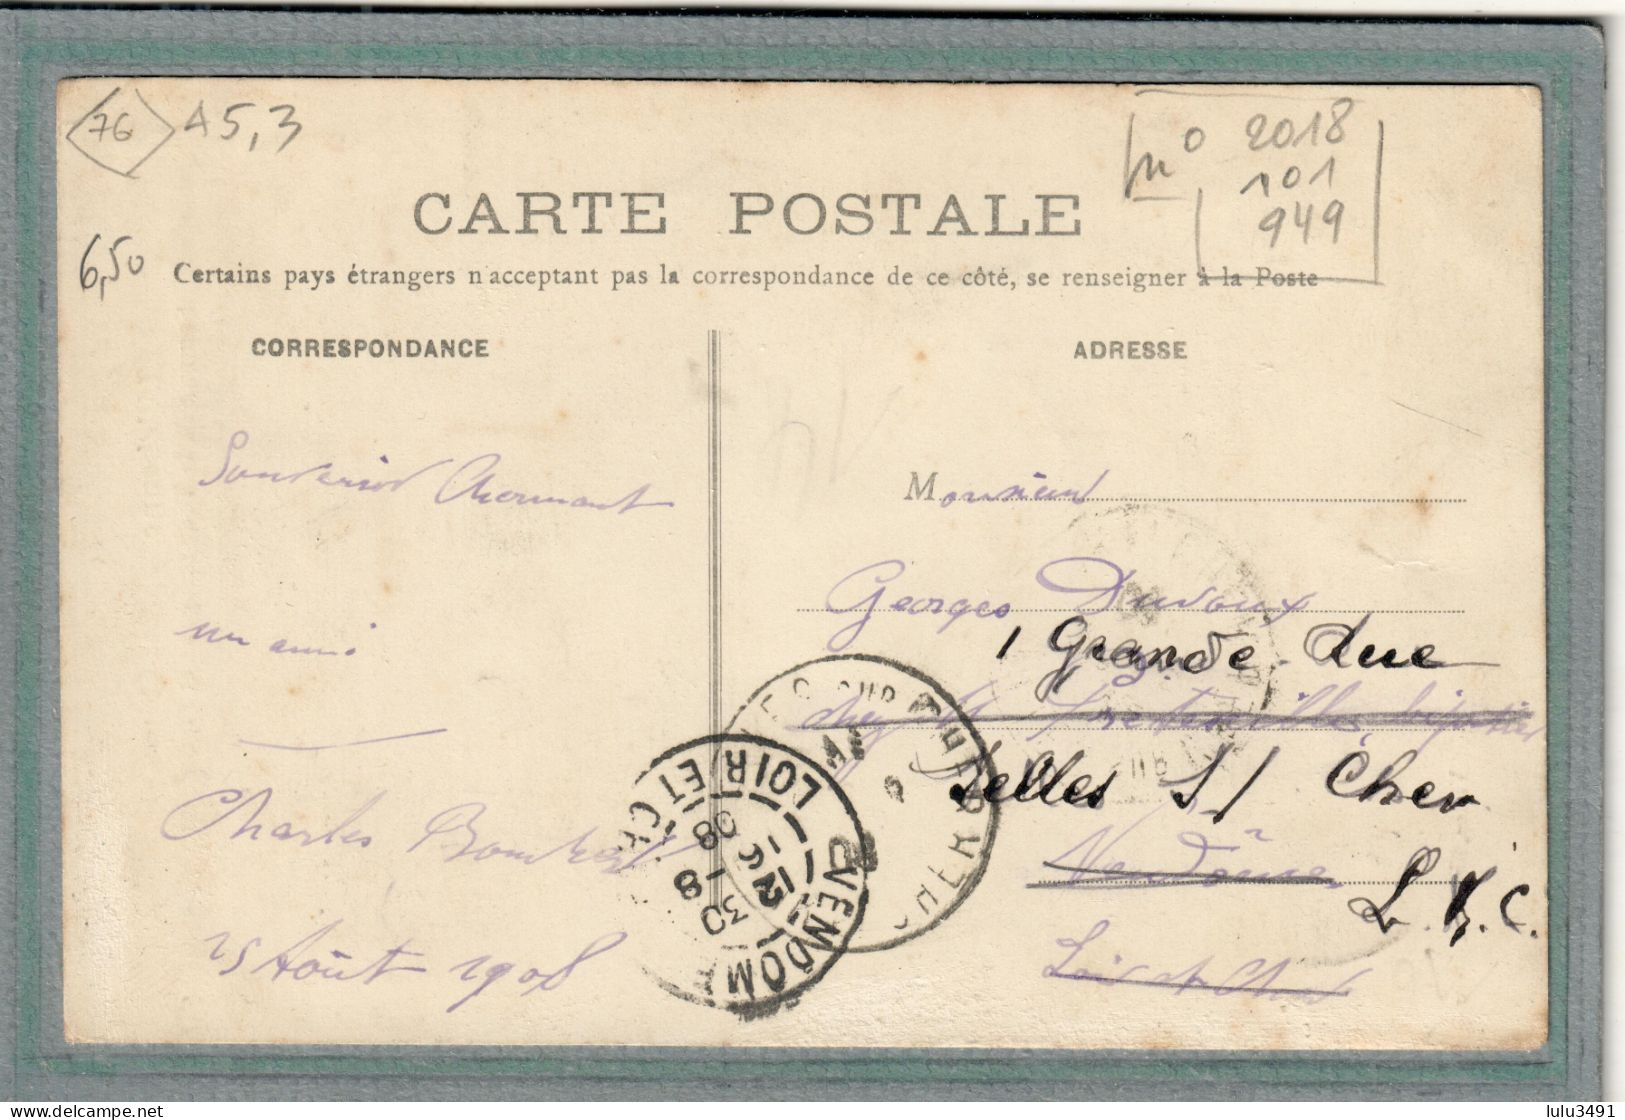 76
A5,3
n° 2018
101
949
6,50
CARTE POSTALE
Certains pays étrangers n'acceptent pas la correspondance de ce côté, se renseigner à la Poste
CORRESPONDANCE
ADRESSE
Souvenir Chermant
un ami
Charles
25 Août 1908
Monsieur
Georges Duvoux
1 Grande Rue
chez M bijoutier
Selles S/ Cher
Vendôme
L. & C.
Loir et Cher
VENDOME
LOIR ET CHER
12
30 -8
08
CHER
lulu3491